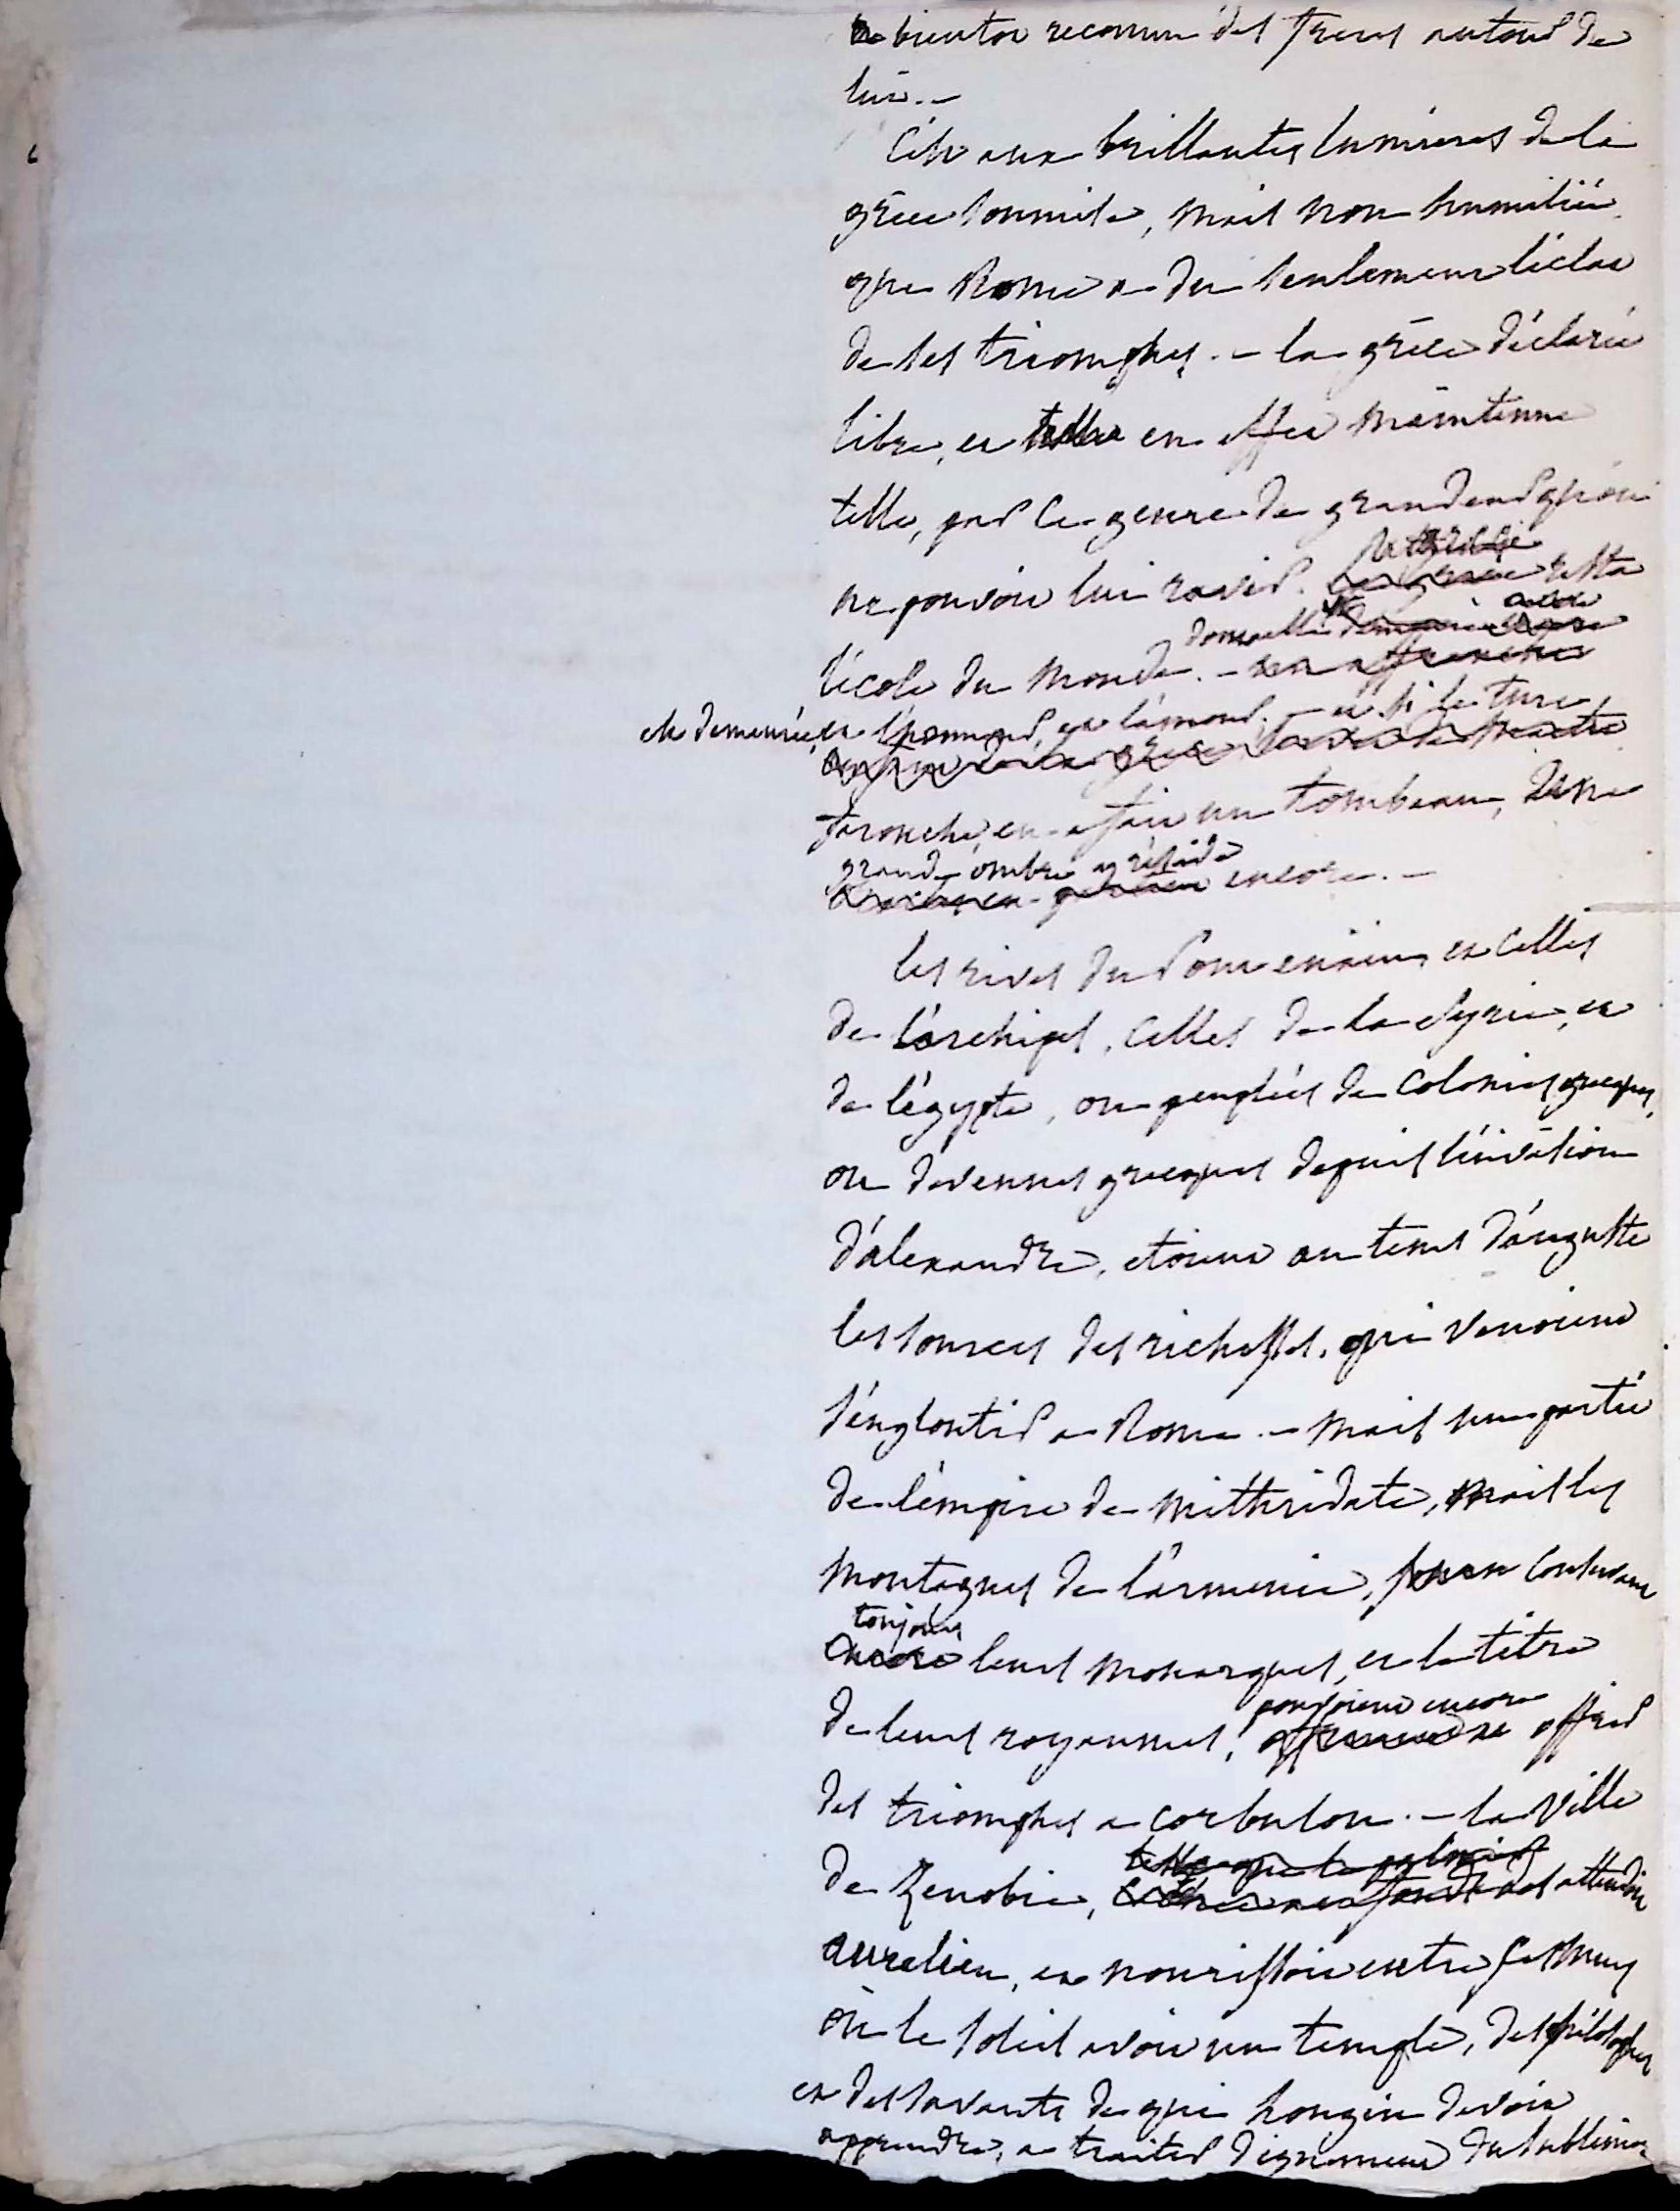 a bientot reconnu des freres autour de
lui. –
C'est aux brillantes lumieres de la
grèce soumise, mais non humiliée
que Rome a du seulement l'éclat
de ses triomphes. – la grèce déclarée
libre, et en effet maintenue
telle, par ce genre de grandeur qu'on
ne pouvoit lui ravir. resta
l'école du monde. –
est demeurée, et l'honneur, et l'amour. – et si le turc
farouche, en a fait un tombeau, une
grande ombre y réside encore. –
les rives du Pont euxin, et celles
de l'archipel, celles de la syrie, et
de l'égypte, ou peuplées de colonies grecques,
ou devenues grecques depuis l'invasion
d'alexandre, etoient au tems d'auguste
les sources des richesses, qui venoient
s'engloutir a Rome. – mais une partie
de l'empire de mithridate, mais les
montagnes de l'armenie, conservant
toujours
leurs monarques, et le titre
de leurs royaumes, pouvoient encore offrir
des triomphes a corbulon. – la ville
de Zenobie, attendoit
aurelien, et nourrissoit entre ses murs
où le soleil avoit un temple, des philosophes
et des savants de qui Longin devoit
apprendre, a traiter dignement du sublime